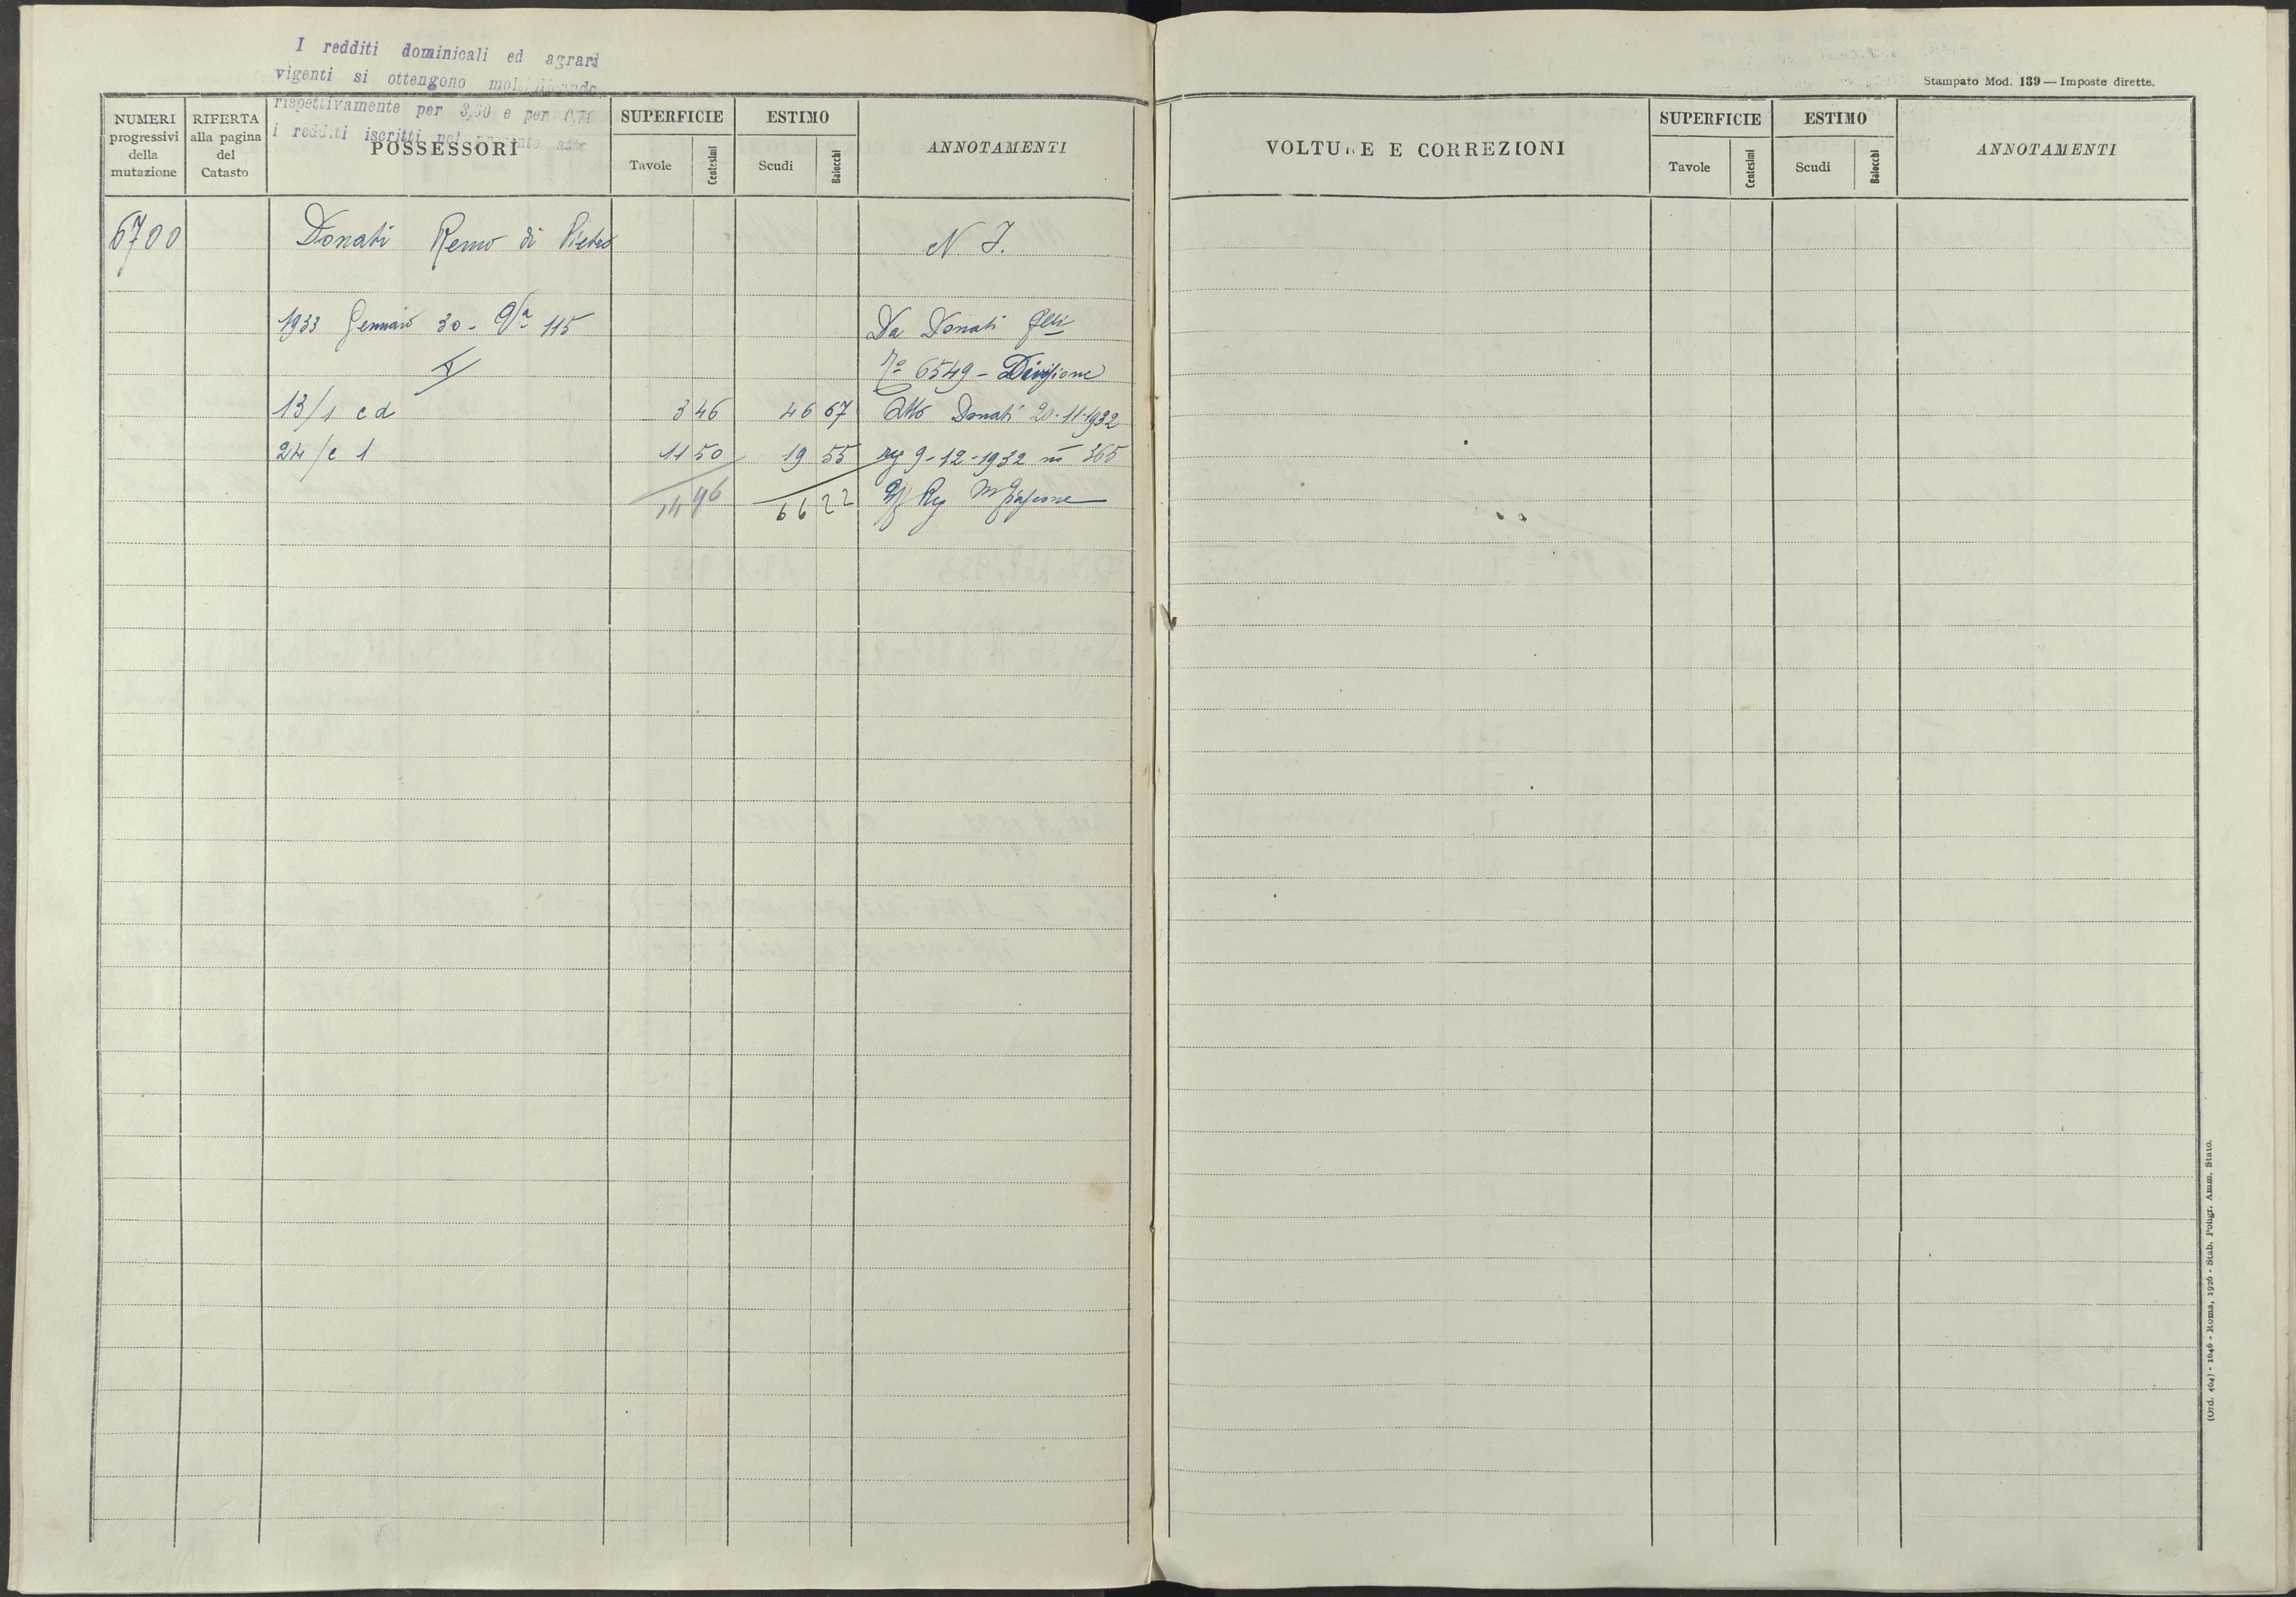 I redditi dominicali ed agrari
vigenti si ottengono moltiplicando
rispettivamente per 3,60 e per
i redditi iscritti nel presente atto
Stampato Mod. 139 — Imposte dirette.
NUMERI progressivi della mutazione
RIFERTA alla pagina del Catasto
POSSESSORI
SUPERFICIE
Tavole
Centesimi
ESTIMO
Scudi
Baiocchi
ANNOTAMENTI
VOLTURE E CORREZIONI
SUPERFICIE
Tavole
Centesimi
ESTIMO
Scudi
Baiocchi
ANNOTAMENTI
6700 Donati Remo di Pietro
1933 Gennaio 30 - 115
13/1 cd 3 46 46 67
24/c 1 11 50 19 55
14 96 66 22
Da Donati
6549 - Divisione
Atto Donati 20-11-1932
reg 9-12-1932 n° 365
(Ord. 464) - 1646 - Roma, 1926 - Stab. Poligr. Amm. Stato.